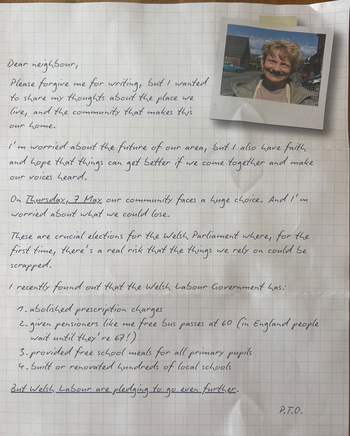 Dear neighbour,
Please forgive me for writing, but I wanted
to share my thoughts about the place we
live, and the community that makes this
our home.
I'm worried about the future of our area, but I also have faith
and hope that things can get better if we come together and make
our voices heard.
On Thursday, 7 May our community faces a huge choice. And I'm
worried about what we could lose.
These are crucial elections for the Welsh Parliament where, for the
first time, there's a real risk that the things we rely on could be
scrapped.
I recently found out that the Welsh Labour Government has:
1. abolished prescription charges
2. given pensioners like me free bus passes at 60 (in England people
wait until they're 67!)
3. provided free school meals for all primary pupils
4. built or renovated hundreds of local schools
But Welsh Labour are pledging to go even further.
P.T.O.